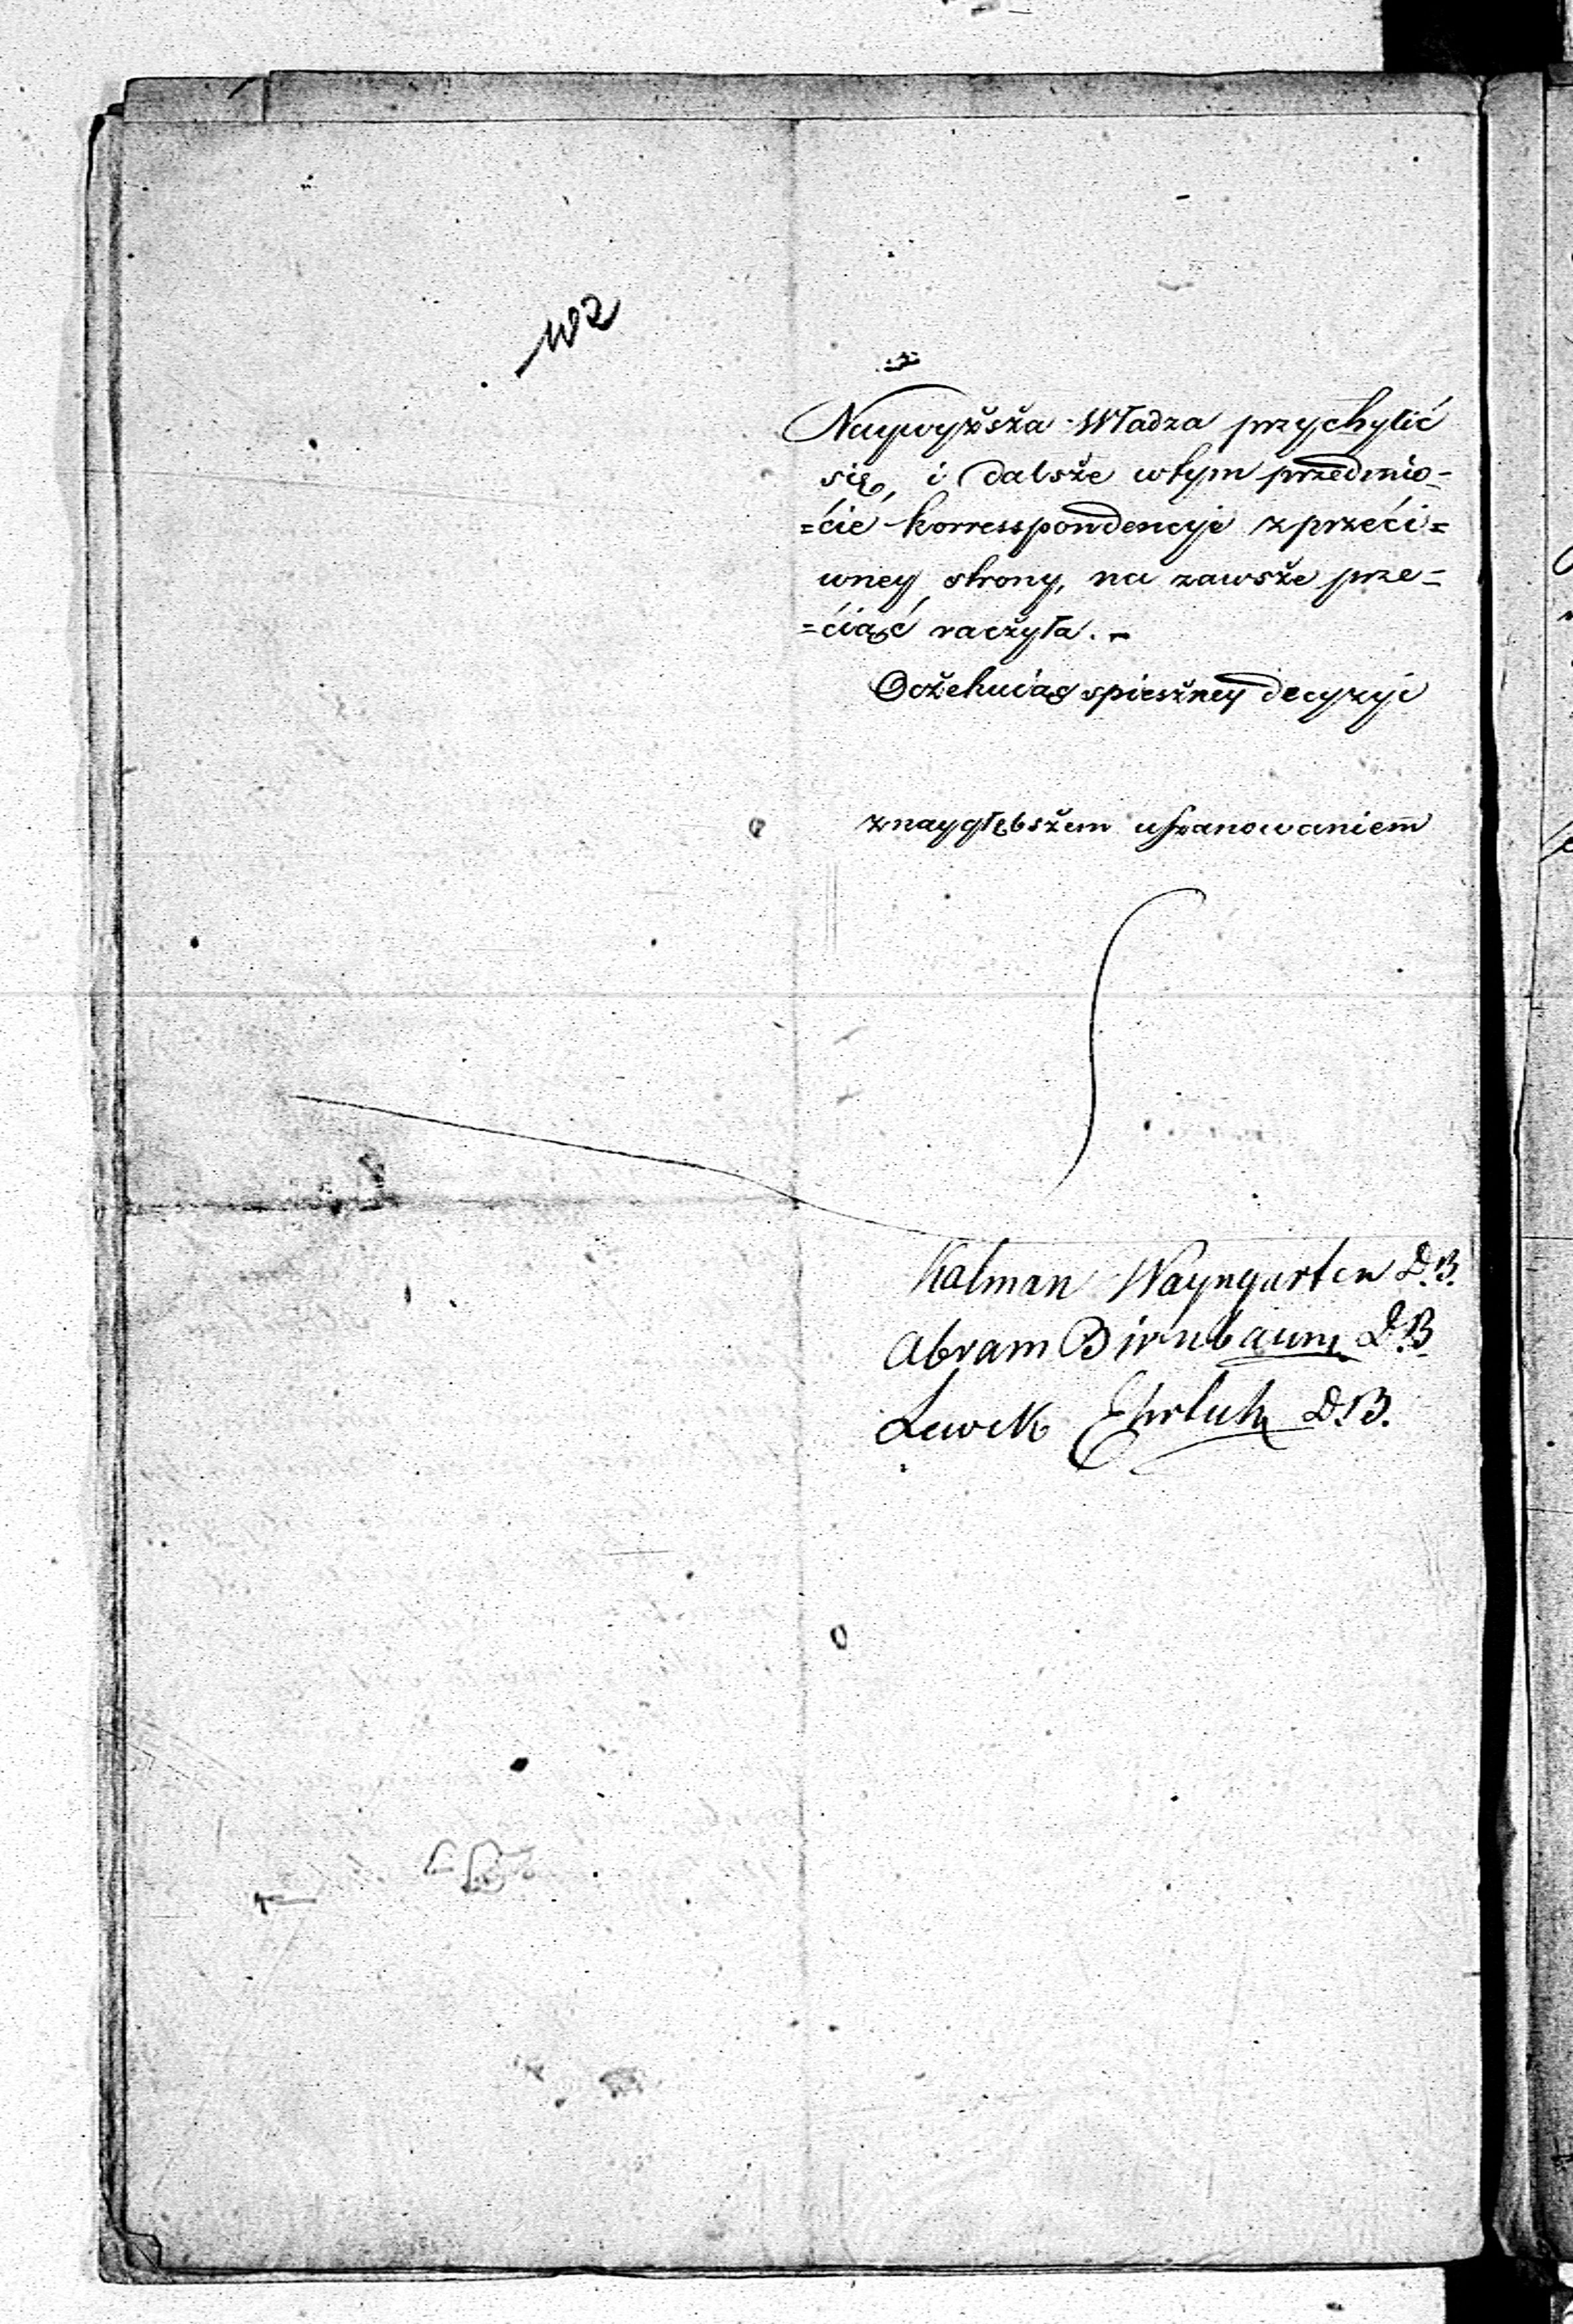 Naywyższa Władza przychylić
się, i dalsze wtym przedmio-
=ćie korresspondencije zprzeći=
wney strony, na zawsze prze=
=ćiąć raczyła. -
Oczekuiąc spieszney decyzyi
znaygłębszem uszanowaniem
Kalman Wayngarten D.B.
Abram Birnbaum D.B
Lewek Ehrlich D.B.